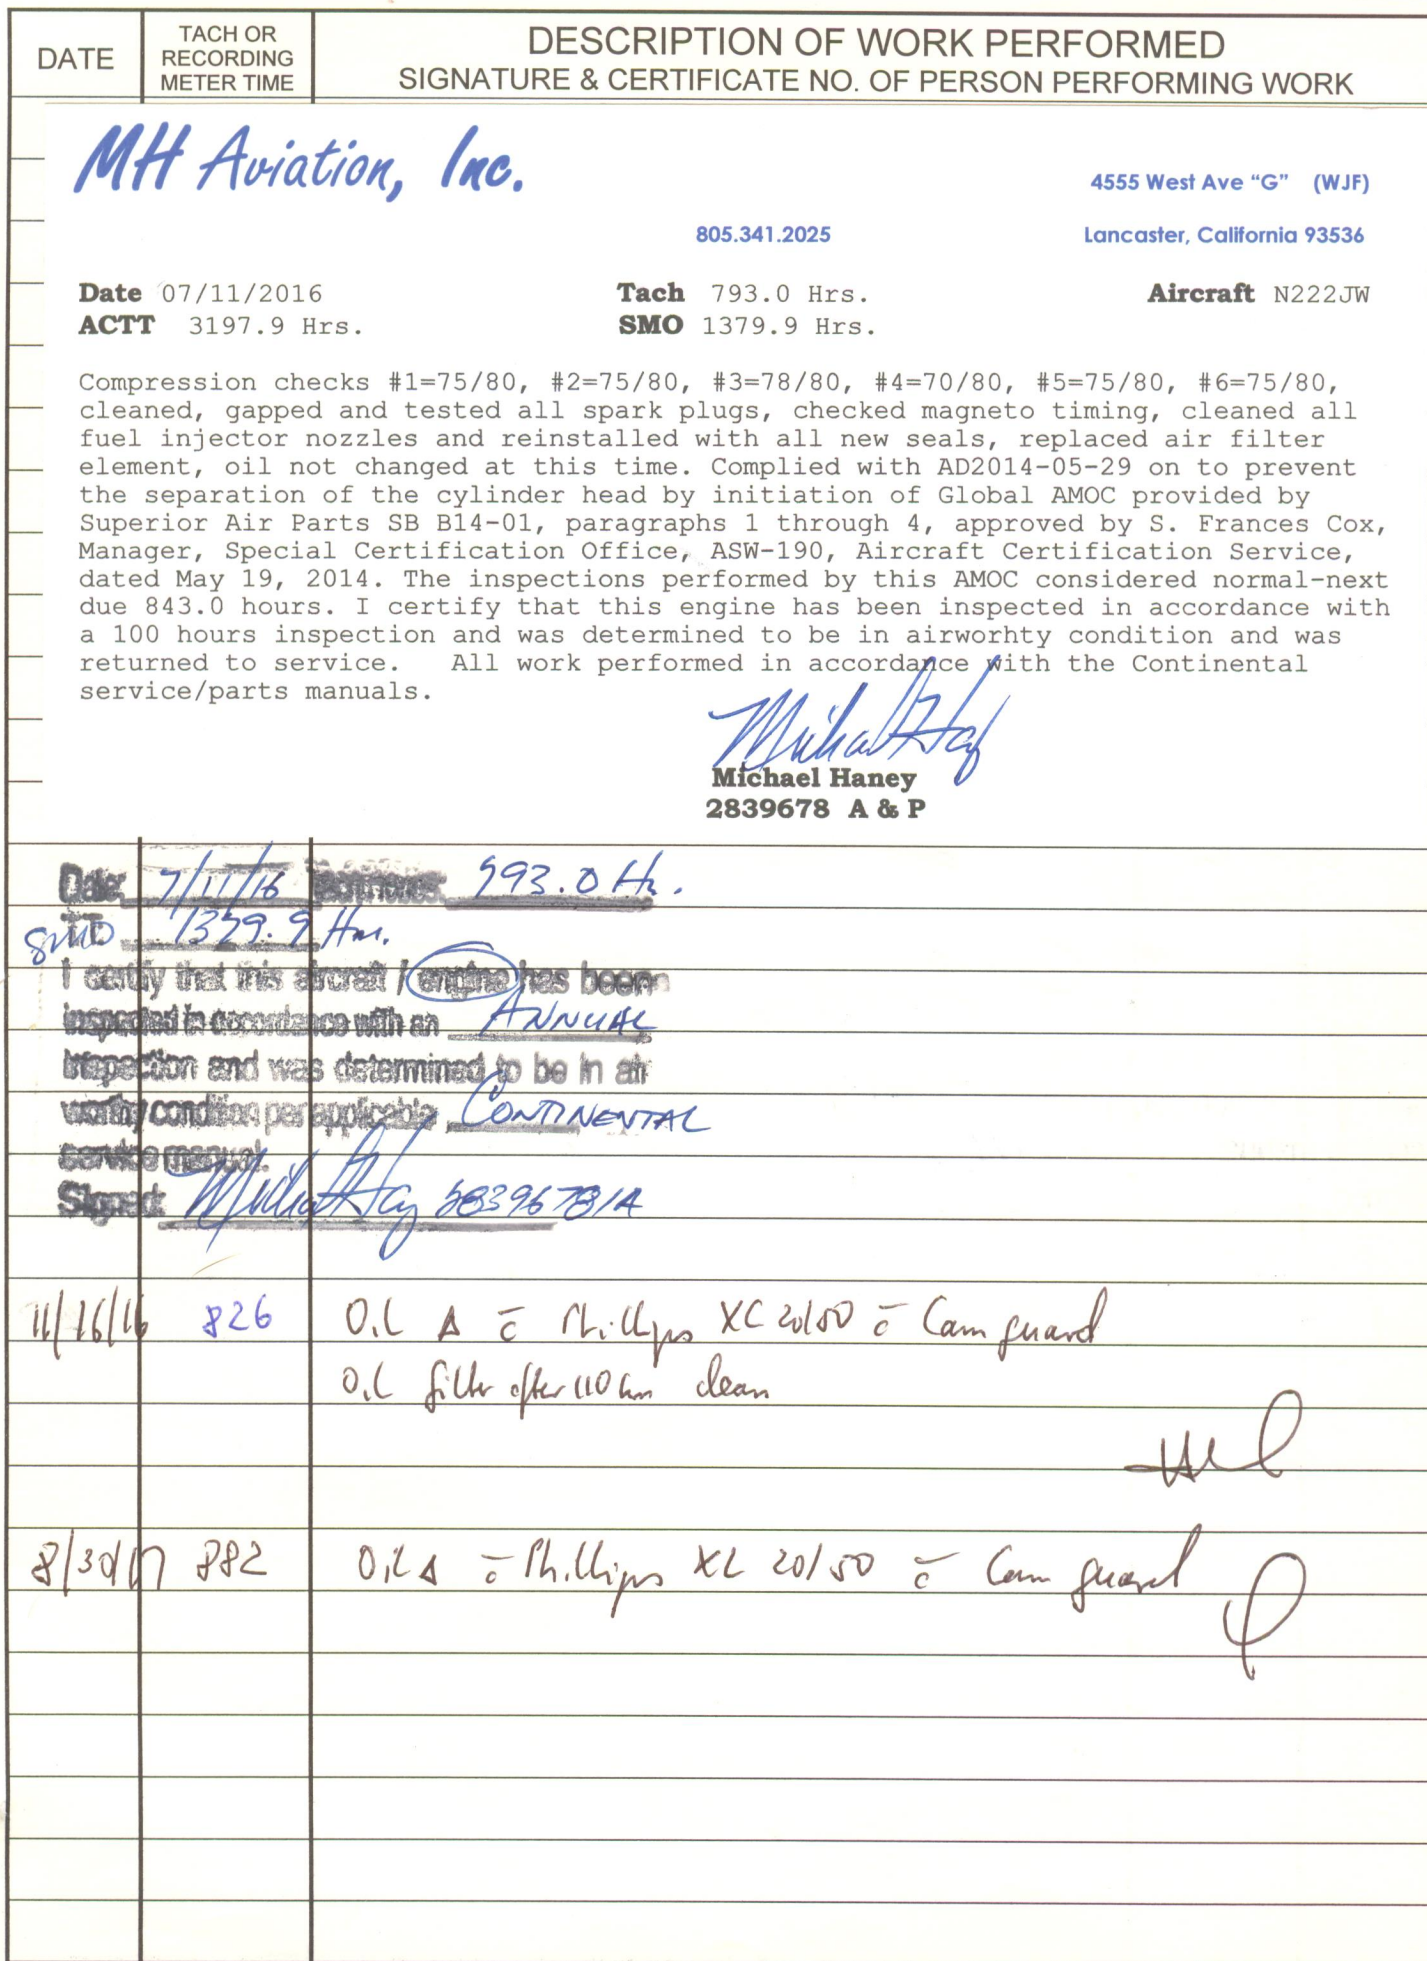 DATE
TACH OR
RECORDING
METER TIME
DESCRIPTION OF WORK PERFORMED
SIGNATURE & CERTIFICATE NO. OF PERSON PERFORMING WORK
MH Aviation, Inc.
4555 West Ave “G” (WJF)
805.341.2025 Lancaster, California 93536
Date 07/11/2016 Tach 793.0 Hrs. Aircraft N222JW
ACTT 3197.9 Hrs. SMO 1379.9 Hrs.
Compression checks #1=75/80, #2=75/80, #3=78/80, #4=70/80, #5=75/80, #6=75/80,
cleaned, gapped and tested all spark plugs, checked magneto timing, cleaned all
fuel injector nozzles and reinstalled with all new seals, replaced air filter
element, oil not changed at this time. Complied with AD2014-05-29 on to prevent
the separation of the cylinder head by initiation of Global AMOC provided by
Superior Air Parts SB B14-01, paragraphs 1 through 4, approved by S. Frances Cox,
Manager, Special Certification Office, ASW-190, Aircraft Certification Service,
dated May 19, 2014. The inspections performed by this AMOC considered normal-next
due 843.0 hours. I certify that this engine has been inspected in accordance with
a 100 hours inspection and was determined to be in airworhty condition and was
returned to service. All work performed in accordance with the Continental
service/parts manuals.
Michael Haney
2839678 A & P
Date: 7/11/16 793.0 Hr.
SMO T.T. 1379.9 Hrs.
I certify that this aircraft / engine has been
inspected in accordance with an ANNUAL
inspection and was determined to be in air
worthy condition per applicable CONTINENTAL
service manual.
Signed: 2839678IA
11/16/16 826 Oil Δ c̄ Phillips XC 20/50 c̄ Cam guard
Oil filter after 110 hrs clean
8/30/17 882 Oil Δ c̄ Phillips XC 20/50 c̄ Cam guard